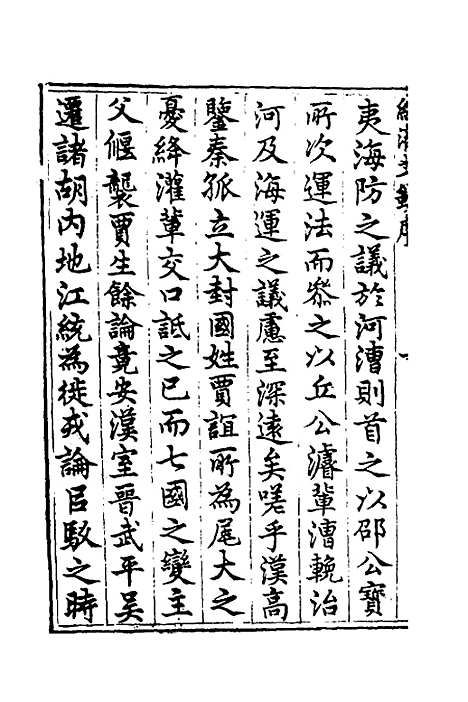 夷海防之議於河漕則首之以邵公寶
所次運法而叅之以丘公濬輩漕輓治
河及海運之議慮至深遠矣嗟乎漢高
鑒秦孤立大封國姓賈誼所為尾大之
憂絳灌輩交口詆之已而七國之變主
父偃襲賈生餘論竟安漢室晉武平吳
遷諸胡內地江統為徙戎論以駁之時